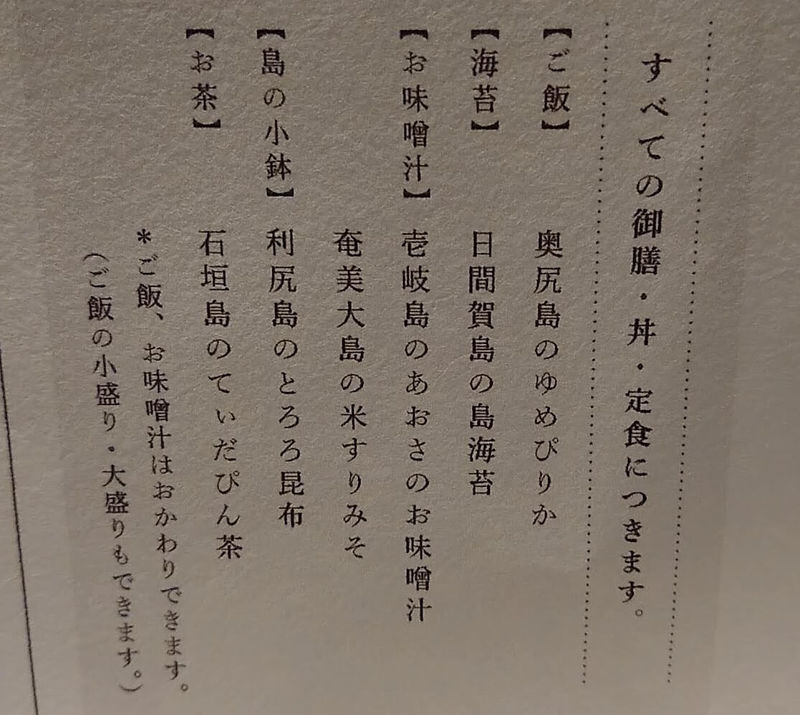 すべての御膳・丼・定食につきます。
【ご飯】 奥尻島のゆめぴりか
【海苔】 日間賀島の島海苔
【お味噌汁】 壱岐島のあおさのお味噌汁
奄美大島の米すりみそ
【島の小鉢】 利尻島のとろろ昆布
【お茶】 石垣島のてぃだぴん茶
*ご飯、お味噌汁はおかわりできます。
（ご飯の小盛り・大盛りもできます。）